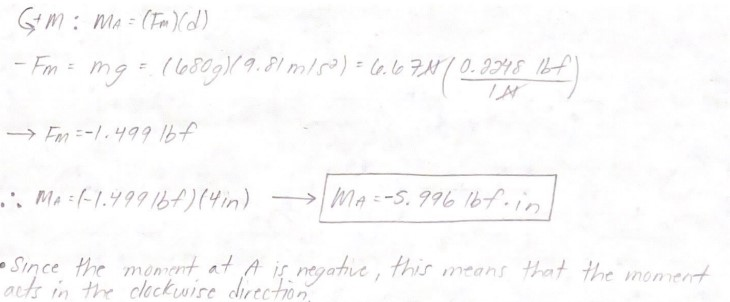 ↺+M: MA = (Fm)(d)
-Fm = mg = (680g)(9.81 m/s²) = 6.67N (0.2248 lbf / 1N)
→ Fm = -1.499 lbf
∴ MA = (-1.499 lbf)(4in) → MA = -5.996 lbf·in
• Since the moment at A is negative, this means that the moment
acts in the clockwise direction.